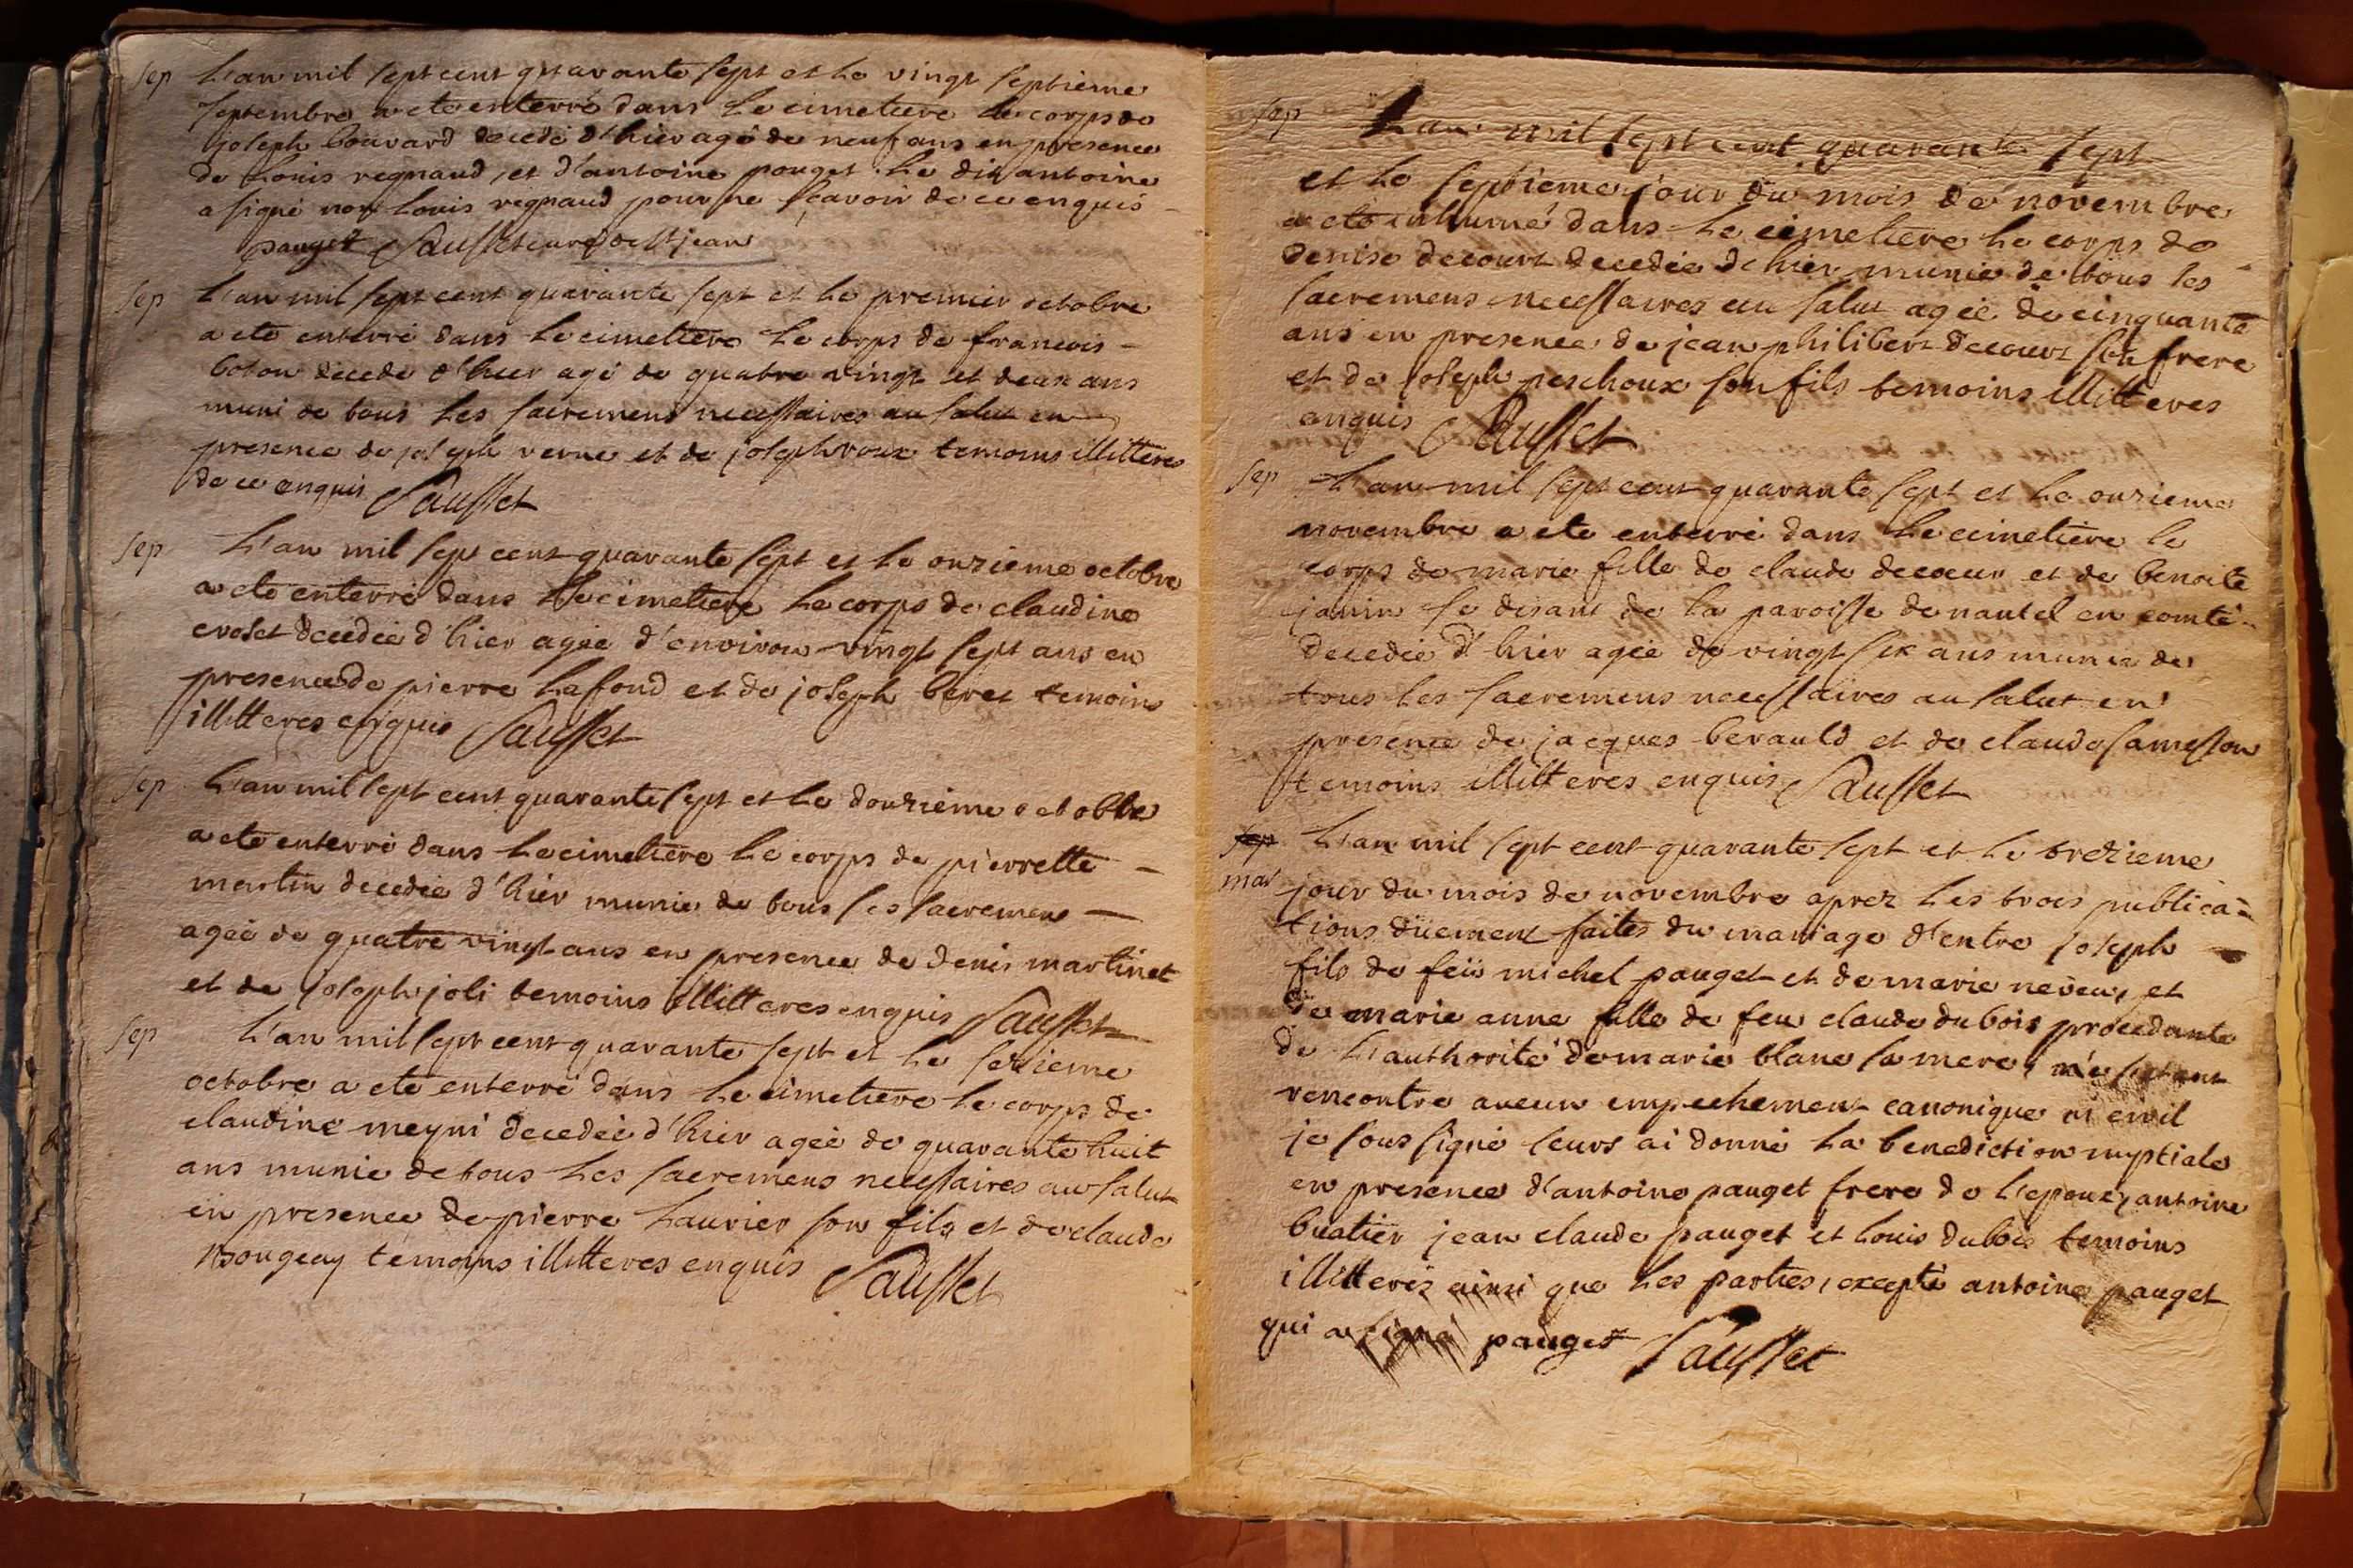 sep L'an mil sept cent quarante sept et le vingt septieme
septembre a ete enterré dans le cimetiere le corps de
joseph bouvard decedé d'hier agé de neuf ans en presence
de louis regnaud, et d'antoine pouget. le dit antoine
a signé non louis regnaud pour ne sçavoir de ce enquis
pauget Sausset curé de st jean
sep L'an mil sept cent quarante sept et le premier octobre
a ete enterré dans le cimetiere le corps de francois
boton decede d'hier agé de quatre vingt et deux ans
muni de tous les sacremens necessaires au salut en
presence de joseph verne et de joseph roux temoins illitteres
de ce enquis Sausset
sep L'an mil sept cent quarante sept et le onzieme octobre
a ete enterré dans le cimetiere le corps de claudine
croset decedée d'hier agée d'environ vingt sept ans en
presence de pierre lafond et de joseph beret temoins
illitteres enquis Sausset
sep L'an mil sept cent quarante sept et le douzieme octobre
a ete enterré dans le cimetiere le corps de pierrette
martin decedée d'hier munie de tous les sacremens
agée de quatre vingt ans en presence de denis martinet
et de joseph joli temoins illitteres enquis Sausset
sep L'an mil sept cent quarante sept et le sezieme
octobre a ete enterré dans le cimetiere le corps de
claudine meyni decedée d'hier agée de quarante huit
ans munie de tous les sacremens necessaires au salut
en presence de pierre laurier son fils et de claude
temoins illitteres enquis Sausset
sep L'an mil sept cent quarante sept
et le septieme jour du mois de novembre
a eté inhumé dans le cimetiere le corps de
denise decourt decedée d'hier munie de tous les
sacremens necessaires au salut agée de cinquante
ans en presence de jean philibert decourt son frere
et de joseph peschoux son fils temoins illitteres
enquis Sausset
sep L'an mil sept cent quarante sept et le onzieme
novembre a ete enterré dans le cimetiere le
corps de marie fille de claude decoeur et de benoite
janin se disant de la paroisse de nantel en comté
decedée d'hier agée de vingt six ans munie de
tous les sacremens necessaires au salut en
presence de jacques berauld et de claude sameston
temoins illitteres enquis Sausset
sep L'an mil sept cent quarante sept et le trezieme
mar jour du mois de novembre aprez les trois publica-
tions düement faites du mariage d'entre joseph
fils de feü michel pauget et de marie neveu, et
de marie anne fille de feu claude dubois procedante
de l'authorité de marie blanc sa mere, n'estant
rencontre aucun empechement canonique ni civil
je soussigné leurs ai donné la benediction nuptiale
en presence d'antoine pauget frere de l'epoux, antoine
buatier jean claude pauget et louis dubois temoins
illitteres ainsi que les parties, excepté antoine pauget
qui a signé pauget Sausset